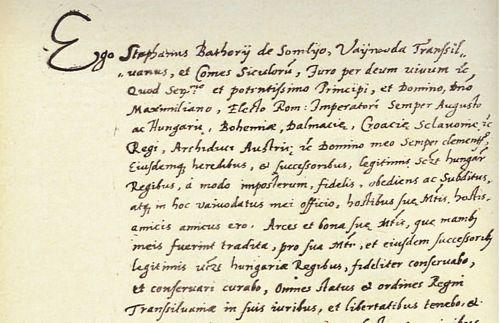 Ego Stephanus Bathorÿ de Somlÿo, Vaÿwoda Transsil-
vanus, et Comes Siculorū, Juro per deum vivum ec
Quod Sermo et potentissimo Principi, et Domino, Dno
Maximiliano, Electo Rom: Imperatori Semper Augusto
ac Hungarie, Bohemiæ, Dalmaciæ, Croaciæ Sclavoniæ ec
Regi, Archiduci Austriæ ec Domino meo Semper clementmo,
Eiusdemq heredibus, et successoribus, legitimis Sczt hungar
Regibus, á modo imposterum, fidelis, obediens ac Subditus,
atq in hoc vaivodatus mei officio, hostibus suę Mtis. hostis,
amicis amicus ero. Arces et bona suę Mtis, que manibȝ
meis fuerint tradita, pro sua Mte, et eiusdem successoribȝ
legitimis vczt hungariæ Regibus, fideliter conservabo,
et conservari curabo, Omnes status et ordines Regni
Transilvaniæ in suis iuribus, et libertatibus tenebo, et